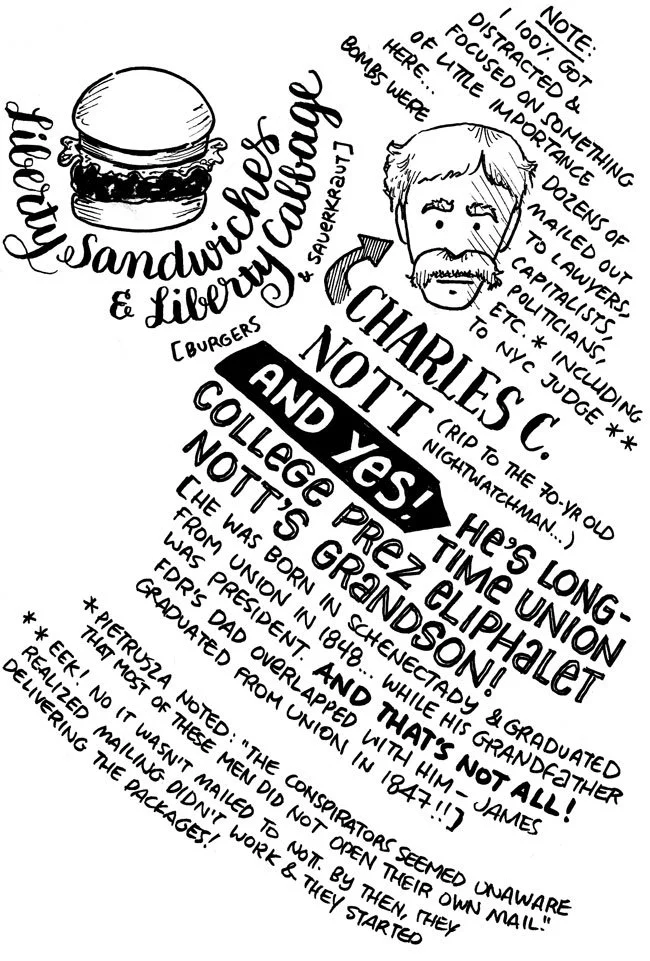 Liberty Sandwiches
& Liberty Cabbage
[BURGERS
& SAUERKRAUT]
NOTE:
I 100% GOT
DISTRACTED &
FOCUSED ON SOMETHING
OF LITTLE IMPORTANCE
HERE...
BOMBS WERE
DOZENS OF
MAILED OUT
TO LAWYERS,
CAPITALISTS,
POLITICIANS,
ETC. * INCLUDING
TO NYC JUDGE **
CHARLES C.
NOTT
(RIP TO THE 70-YR OLD
NIGHTWATCHMAN...)
AND YES!
HE'S LONG-
TIME UNION
COLLEGE PREZ ELIPHALET
NOTT'S GRANDSON!
[HE WAS BORN IN SCHENECTADY & GRADUATED
FROM UNION IN 1848... WHILE HIS GRANDFATHER
WAS PRESIDENT. AND THAT'S NOT ALL!
FDR'S DAD OVERLAPPED WITH HIM – JAMES
GRADUATED FROM UNION IN 1847!!]
* PIETRUSZA NOTED: "THE CONSPIRATORS SEEMED UNAWARE
THAT MOST OF THESE MEN DID NOT OPEN THEIR OWN MAIL."
** EEK! NO IT WASN'T MAILED TO NOTT. BY THEN, THEY
REALIZED MAILING DIDN'T WORK & THEY STARTED
DELIVERING THE PACKAGES!